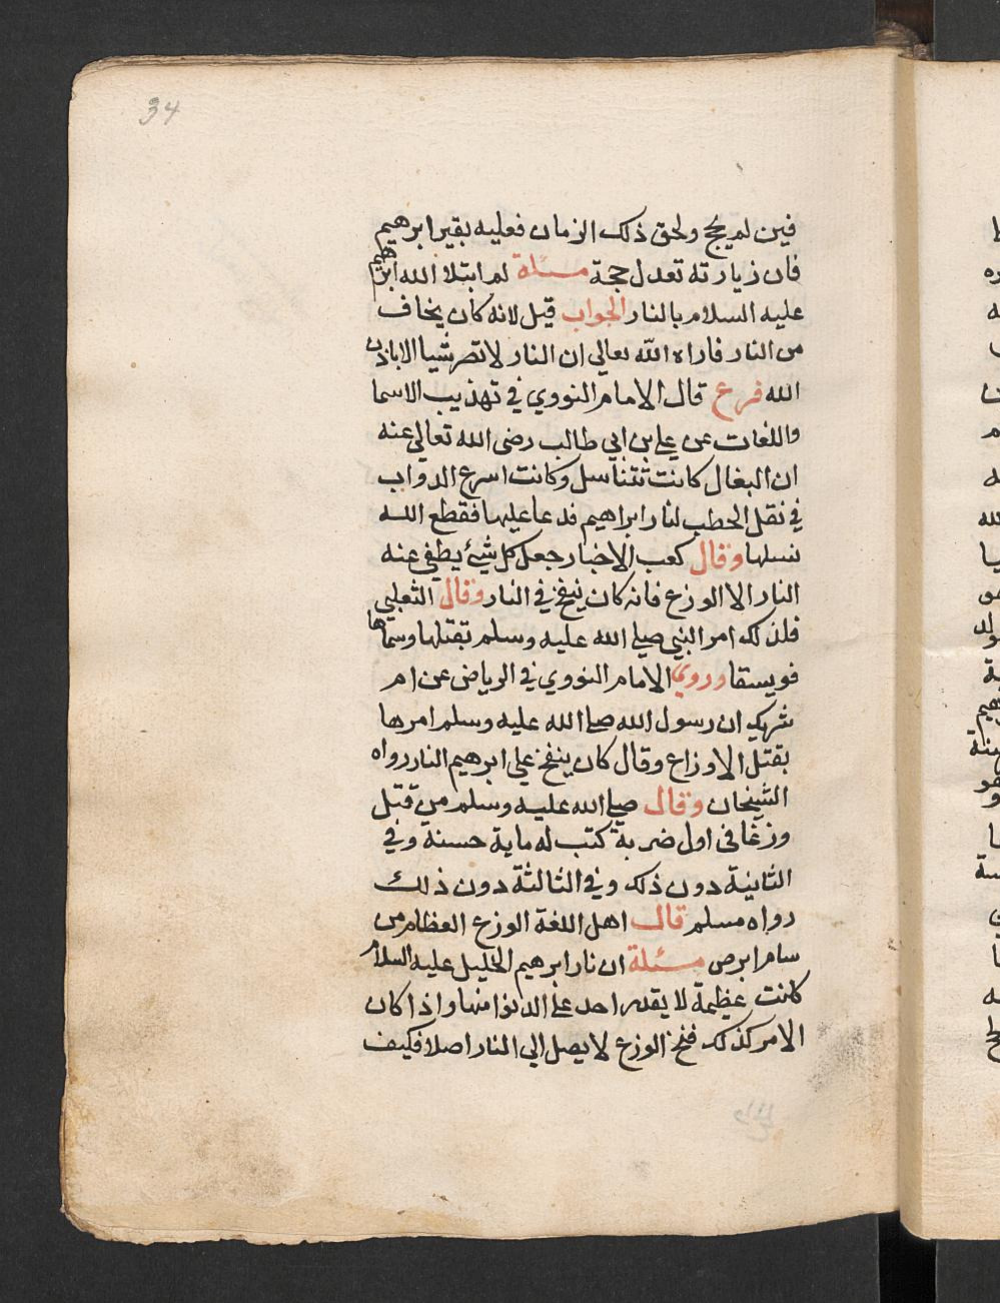 34
فمن لم يحج ولحق ذلك الزمان فعليه بقبر ابرهيم
فان زيارته تعدل حجة مسئلة لم ابتلا الله ابرهيم
عليه السلام بالنار الجواب قيل لانه كان يخاف
من النار فاراه الله تعالي ان النار لا تضر شيا الا باذن
الله فرع قال الامام النووي في تهذيب الاسما
واللغات عن علي بن ابي طالب رضى الله تعالي عنه
ان البغال كانت تتناسل وكانت اسرع الدواب
في نقل الحطب لنار ابراهيم فدعا عليها فقطع الله
نسلها وقال كعب الاخبار جعل كل شيئ يطفي عنه
النار الا الوزغ فانه كان ينفخ في النار وقال الثعلبي
فلذلك امر النبي صلي الله عليه وسلم بقتلها وسماها
فويسقا وروي الامام النووي في الرياض عن ام
شريك ان رسول الله صلي الله عليه وسلم امرها
بقتل الاوزاغ وقال كان ينفخ علي ابرهيم النار رواه
الشيخان وقال صلي الله عليه وسلم من قتل
وزغا في اول ضربة كتب له ماية حسنة وفي
الثانية دون ذلك وفي الثالثة دون ذلك
رواه مسلم قال اهل اللغة الوزغ العظام من
سام ابرص مسئلة ان نار ابرهيم الخليل عليه السلام
كانت عظيمة لا يقدر احد علي الدنوا منها واذا كان
الامر كذلك فنفخ الوزغ لا يصل الي النار اصلا فكيف